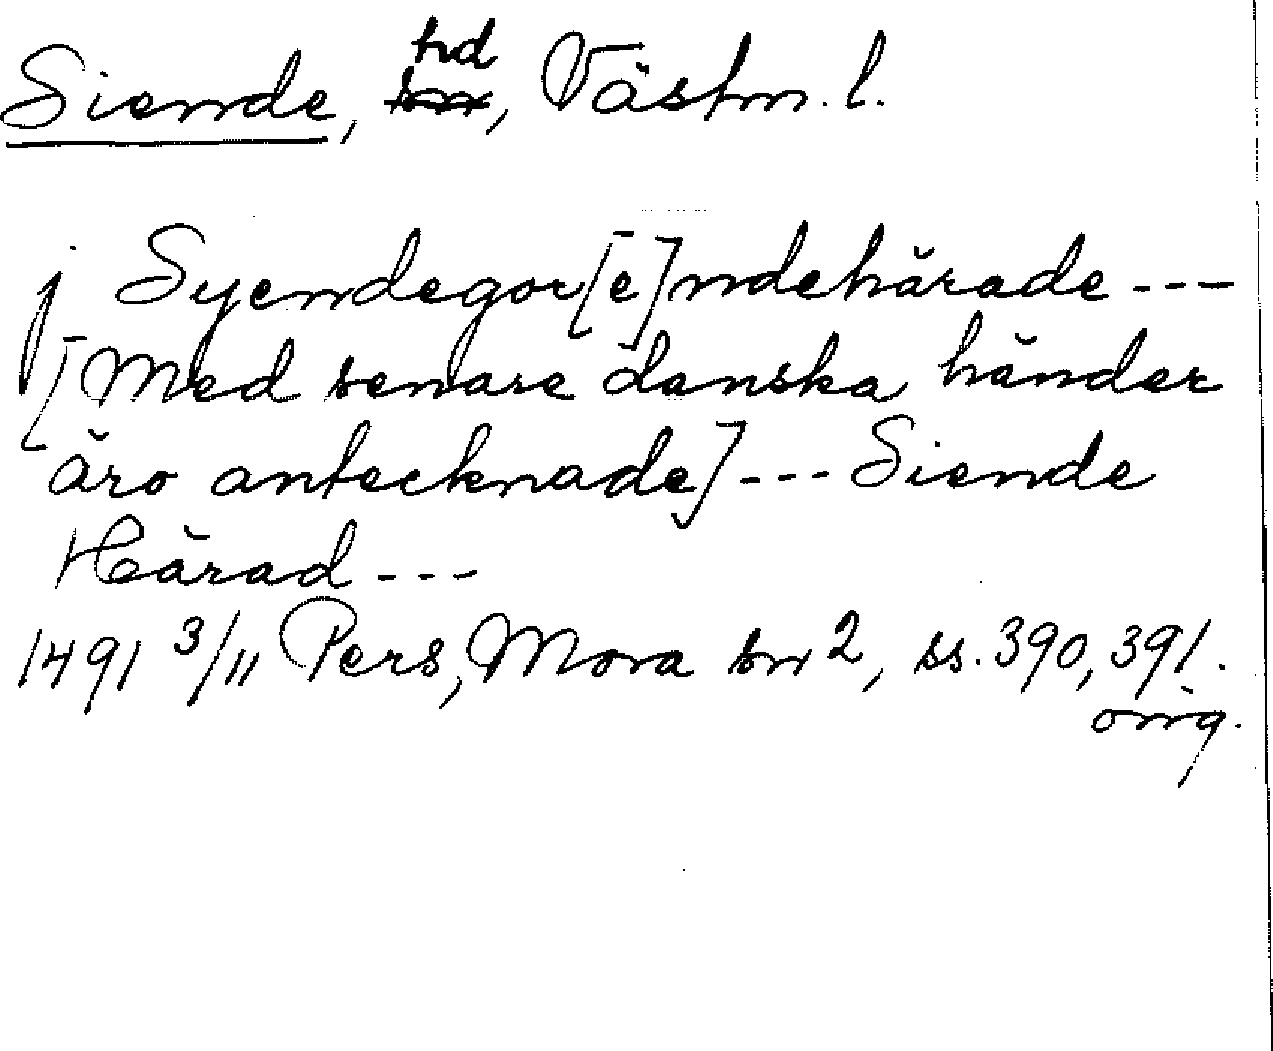 Siende, hd, Västm. l.
j Syendegor[e]ndehärade ---
[Med senare danska händer
äro antecknade] --- Siende
Härad ---
1491 3/11 Pers, Mora sn 2, ss. 390, 391.
orig.